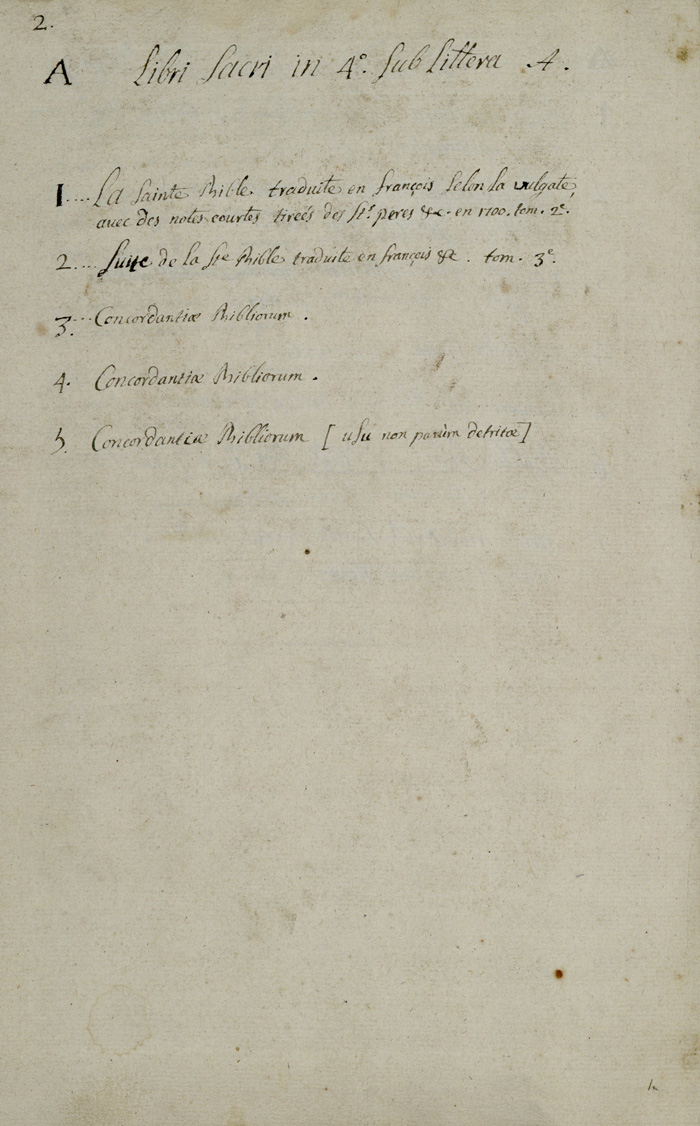 2.
A Libri Sacri in 4°. Sub Littera A.
1.... La Sainte Bible traduite en françois selon la vulgate,
avec des notes courtes tireés des Sts. peres &c. en 1700. tom. 2e.
2.... Suite de la Ste Bible traduite en françois &c. tom. 3e.
3.... Concordantiæ Bibliorum.
4. Concordantiæ Bibliorum.
5. Concordantiæ Bibliorum [usu non parùm detritæ]